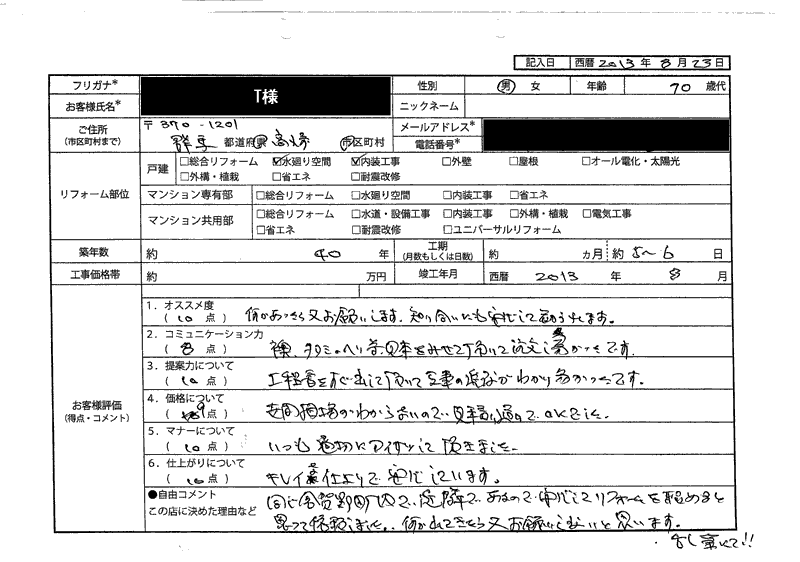 記入日 西暦 2013 年 8 月 23 日
フリガナ* T様 性別 男 女 年齢 70 歳代
お客様氏名* ニックネーム
ご住所 (市区町村まで) 〒370-1201 群馬 都道府県 高崎 市区町村 メールアドレス* 電話番号*
リフォーム部位
戸建 □総合リフォーム ☑水廻り空間 ☑内装工事 □外壁 □屋根 □オール電化・太陽光
□外構・植栽 □省エネ □耐震改修
マンション専有部 □総合リフォーム □水廻り空間 □内装工事 □省エネ
マンション共用部 □総合リフォーム □水道・設備工事 □内装工事 □外構・植栽 □電気工事
□省エネ □耐震改修 □ユニバーサルリフォーム
築年数 約 40 年 工期 (月数もしくは日数) 約 ヵ月 約 5〜6 日
工事価格帯 約 万円 竣工年月 西暦 2013 年 8 月
お客様評価 (得点・コメント)
1．オススメ度
( 10 点 ) 何かあったら又お願いします。知り合いにも安心して勧められます。
2．コミュニケーション力
( 8 点 ) 襖、タタミのヘリ等見本をみせて頂いて注文し易かったです。
3．提案力について
( 10 点 ) 工程書をすぐ出して頂いて工事の流れがわかり易かったです。
4．価格について
( 9 点 ) 世間相場がわからないので、見積り通りで、OKでした。
5．マナーについて
( 10 点 ) いつも親切にアイサツして頂きました。
6．仕上がりについて
( 10 点 ) キレイな仕上りで安心しています。
●自由コメント 同じ倉賀野町内で、近隣で、あるので安心してリフォームを頼めると
この店に決めた理由など 思って依頼しました。何かでてきたら又お願いしたいと思います。
・よし宜にて!!